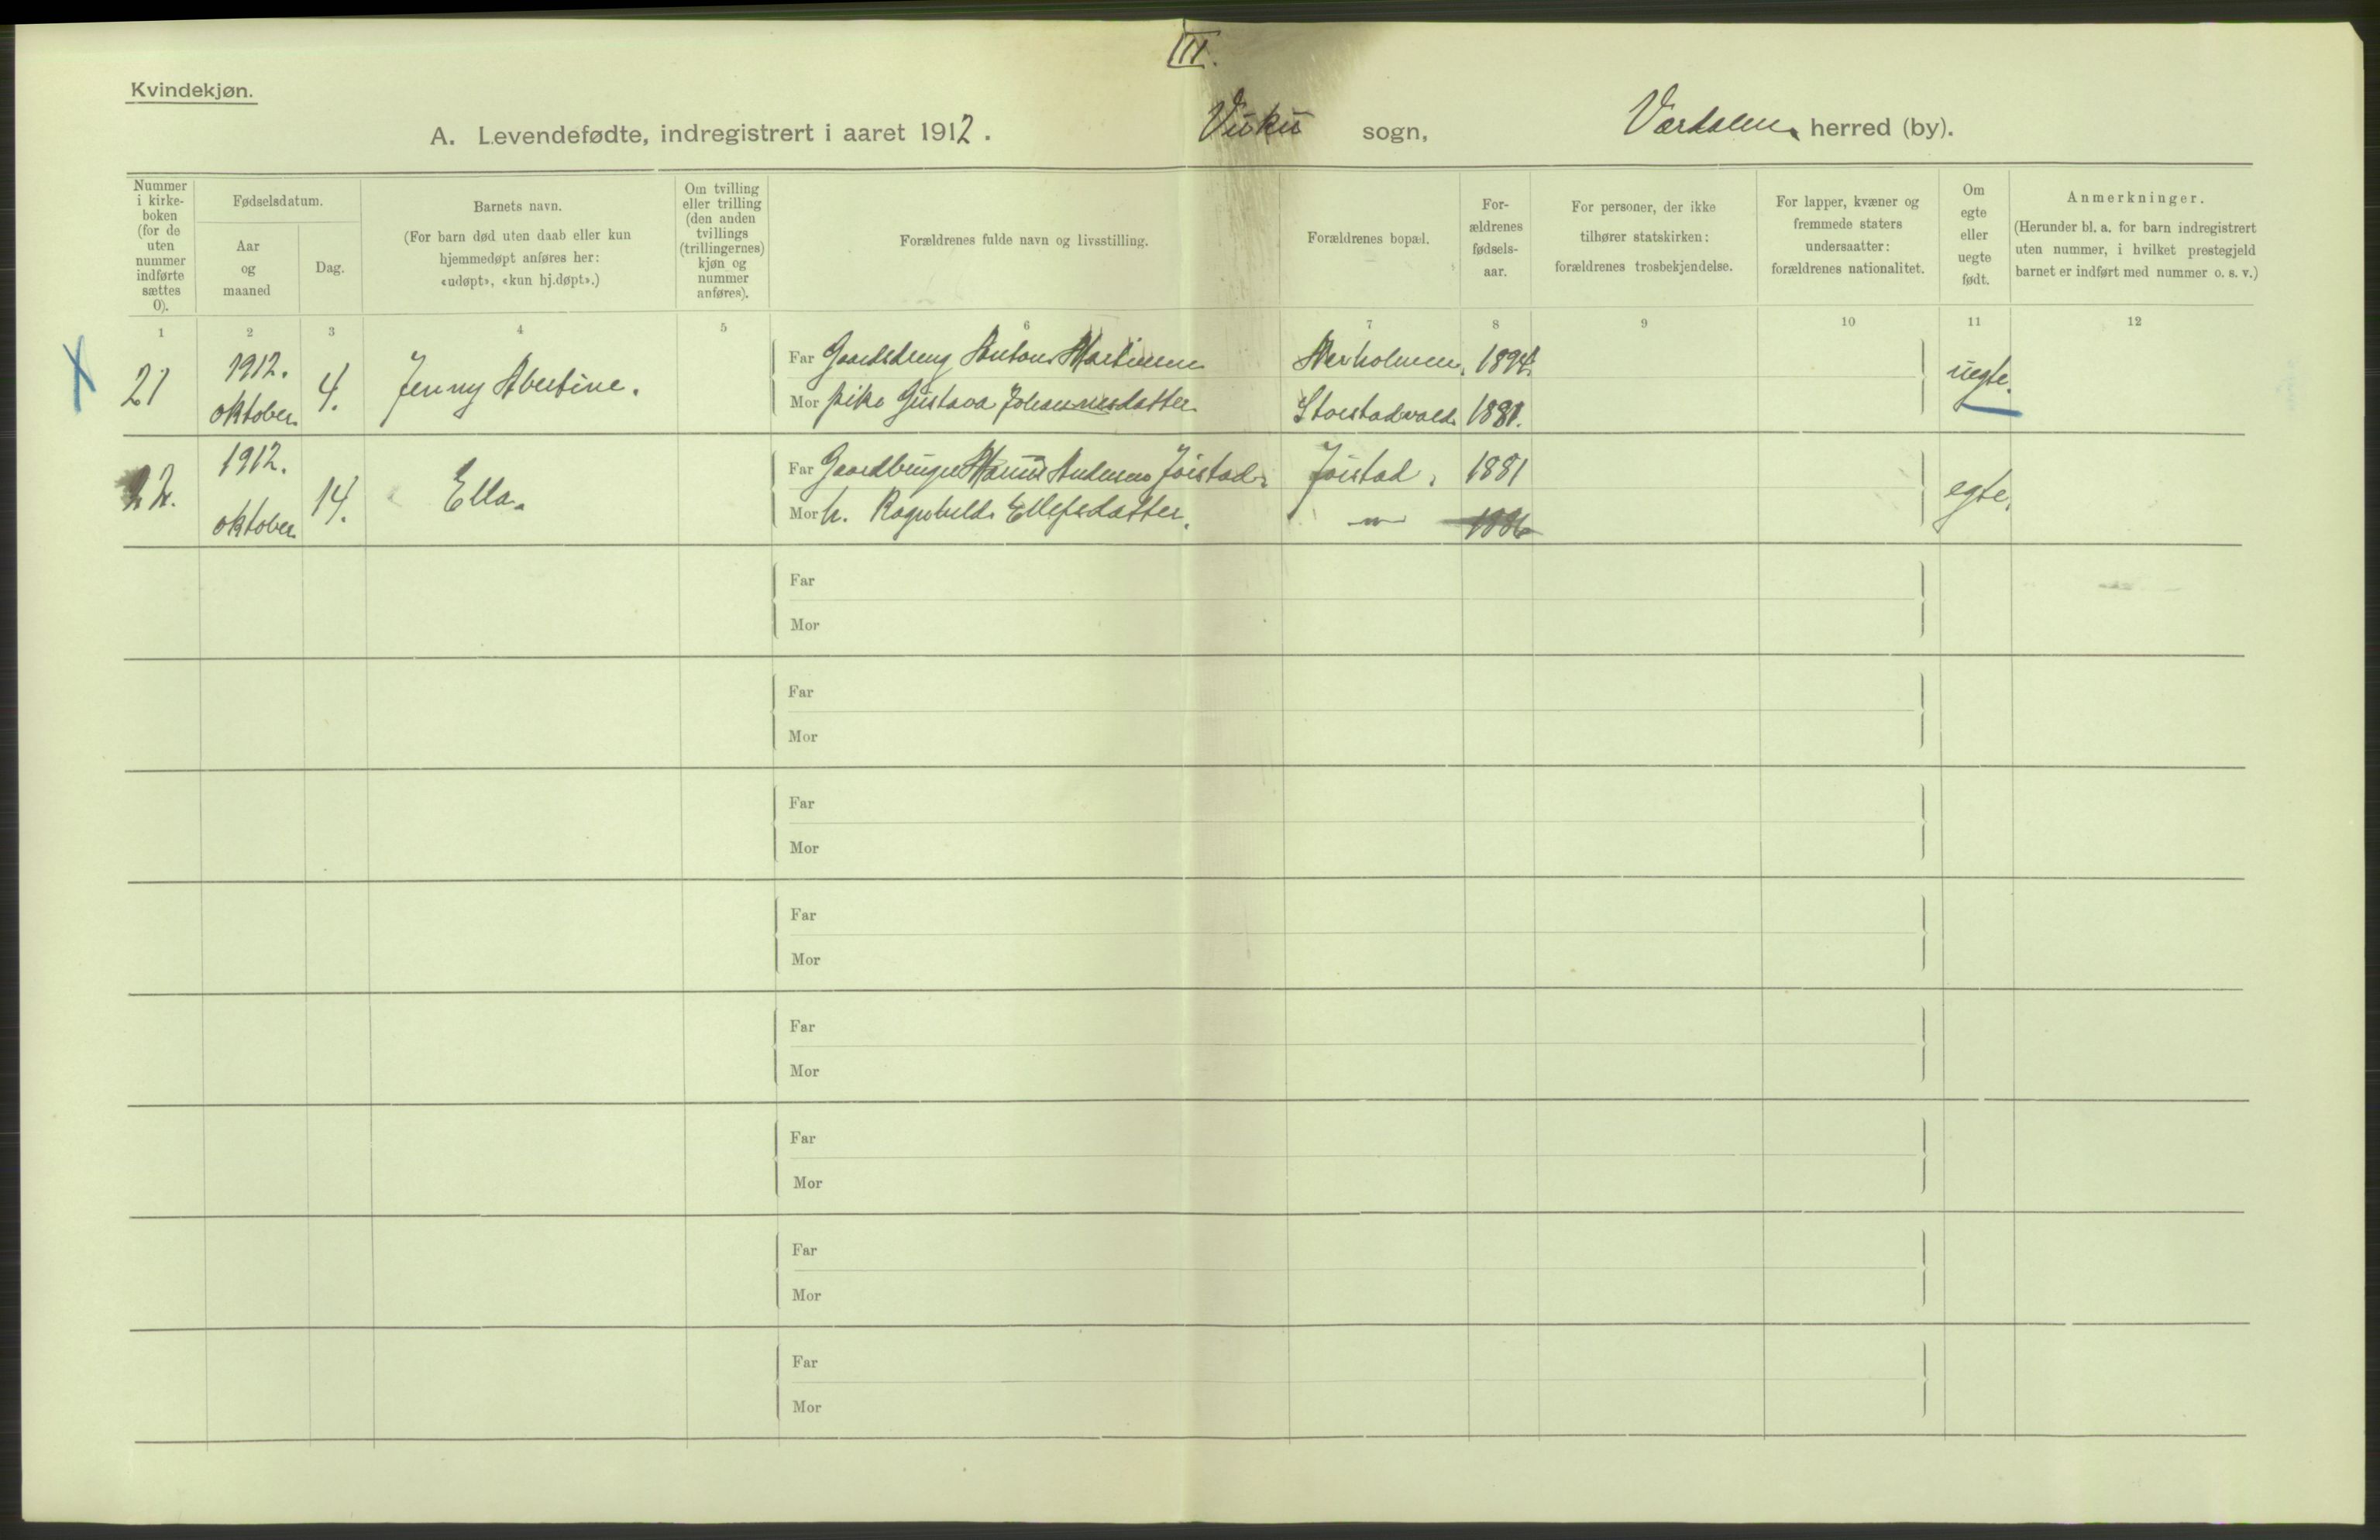 III.
Kvindekjøn.
A. Levendefødte, indregistrert i aaret 1912. Vuku sogn, Værdalen herred (by).
Nummer i kirke-boken (for de uten nummer indførte sættes 0).
Fødselsdatum.
Aar og maaned
Dag.
Barnets navn.
(For barn død uten daab eller kun hjemmedøpt anføres her: «udøpt», «kun hj.døpt».)
Om tvilling eller trilling (den anden tvillings (trillingernes) kjøn og nummer anføres).
Forældrenes fulde navn og livsstilling.
Forældrenes bopæl.
For-ældrenes fødsels-aar.
For personer, der ikke tilhører statskirken: forældrenes trosbekjendelse.
For lapper, kvæner og fremmede staters undersaatter: forældrenes nationalitet.
Om egte eller uegte født.
Anmerkninger.
(Herunder bl. a. for barn indregistrert uten nummer, i hvilket prestegjeld barnet er indført med nummer o. s. v.)
1 2 3 4 5 6 7 8 9 10 11 12
21 1912. oktober 4. Jenny Abertine. uegte.
Far Gaardsdreng Anton Martinsen 1894.
Mor pike Gustava Johannesdatter 1881.
22. 1912. oktober 14. Ella. egte.
Far Gaardbruger Andersen Joistad Joistad, 1881
Mor h. Ragnhild Ellefsdatter. -"- 1886
Far
Mor
Far
Mor
Far
Mor
Far
Mor
Far
Mor
Far
Mor
Far
Mor
Far
Mor